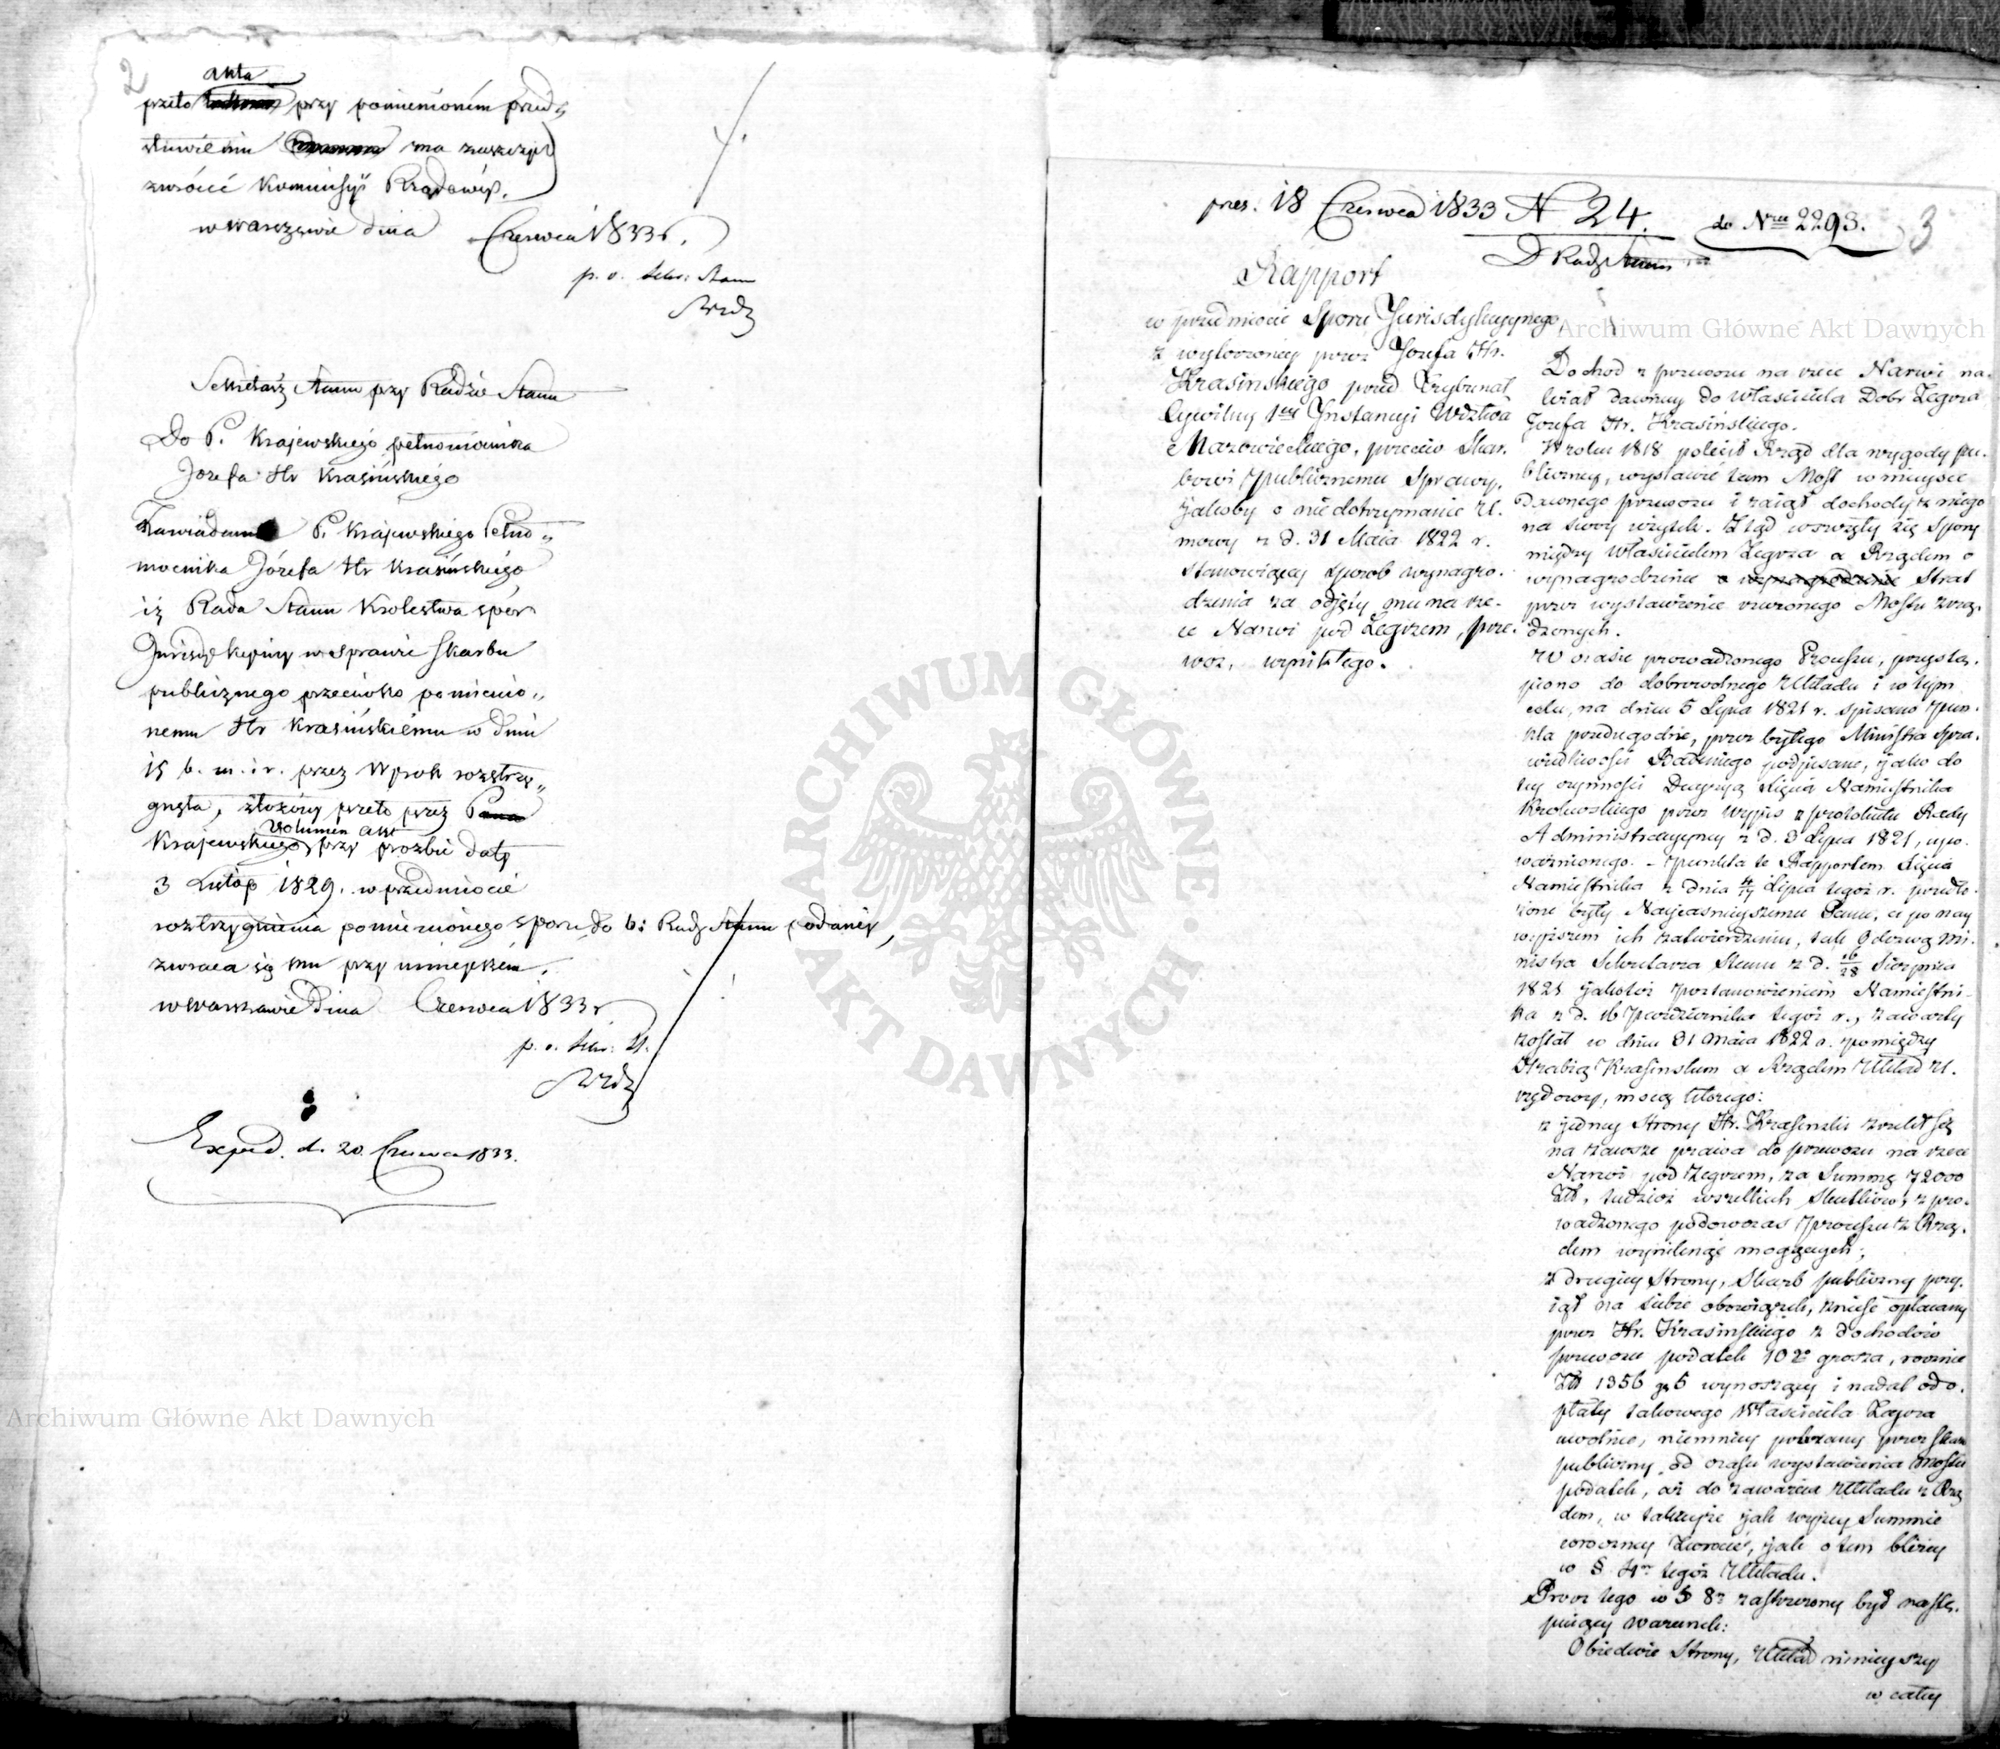 2
akta
przeto przy pomienioném przed„
stawieniu ma zaszczyt
zwrócić Kommissyi Rządowéy.
w Warszawie dnia Czerwca 1833 r.
p. o. Sekr: Stanu
Sekretarz Stanu przy Radzie Stanu
Do P. Krajewskiego pełnomocnika
Józefa Hr Krasińskiego
Zawiadamia P. Krajewskiego Pełno„
mocnika Józefa Hr Krasińskiego
iż Rada Stanu Królestwa spór
Jurisdykcyiny w sprawie Skarbu
publicznego przeciwko pomienio„
nemu Hr Krasińskiemu w dniu
15 b. m. i r. przez Wyrok rozstrzy„
gnęła, złożony przeto przez Pana
Volumen akt
Krajewskiego, przy prozbie daty
3 Lutego 1829. w przedmiocie
rozstrzygnienia pomienionego sporu do b: Rady Stanu podaney,
zwraca się mu przy ninieyszém.
w Warszawie Dnia Czerwca 1833 r
p. o. Sekr: St.
Exped. d. 20 Czerwca 1833.
pres. 18 Czerwca 1833 N 24.
do Nru 2293.
3
D Rady Stanu
Rapport
w przedmiocie Sporu Jurisdykcyjnego,
z wytoczoney przez Jozefa Hr.
Krasinskiego przed Trybunał
Cywilny 1ey Instancyi Wdztwa
Mazowieckiego, przeciw Skar-
bowi Publicznemu Sprawy,
jakoby o niedotrzymanie U-
mowy z d. 31 Maia 1822 r.
stanowiącey sposob wynagro-
dzenia za odjęty mu na rze-
ce Narwi pod Zegrzem, prze-
woz, wynikłego.
Dochod z przewozu na rzece Narwi na-
leżał dawniey do właściciela Dobr Zegrza
Jozefa Hr. Krasińskiego.
W roku 1818 polecił Rząd dla wygody pu-
bliczney, wystawić tam Most w mieysce
dawnego przewozu i zaiął dochody z niego
na swoy użytek. Ztąd wszczęły się Spory
między Właścicielem Zegrza a Rządem o
wynagrodzenie o wynagrodzenie Strat
przez wystawienie rzeczonego Mostu zrzą-
dzonych.
W czasie prowadzonego Processu, przystą-
piono do dobrowolnego Układu i w tym
celu, na dniu 5 Lipca 1821 r. spisano Pun-
kta przedugodne, przez byłego Ministra Spra-
wiedliwości Badeniego podpisane, jako do
tey czynności Decyzyą Xięcia Namiestnika
Krolewskiego przez wypis z protokułu Rady
Administracyjney z d. 3 Lipca 1821, upo-
ważnionego. - Punkta te Rapportem Xięcia
Namiestnika z dnia Lipca tegoż r. przedło-
żone były Nayiaśnieyszemu Panu, a po nay-
wyższem ich zatwierdzeniu, tak Odezwą Mi-
nistra Sekretarza Stanu z d. 16/28 Sierpnia
1821 jakoteż Postanowieniem Namiestni-
ka z d. 16 Października tegoż r., zawarty
został w dniu 31 Maia 1822 r. pomiędzy
Hrabią Krasinskim a Rządem Układ U-
rzędowy, mocą którego:
z jedney Strony Hr. Krasinski zrzekł się
na zawsze prawa do przewozu na rzece
Narwi pod Zegrzem, za Summę 72000
Złt, tudzież wszelkich skutków, z pro-
wadzonego podowczas Processu z Rzą-
dem wyniknąć mogących;
z drugiey Strony, Skarb publiczny przy-
iął na siebie obowiązek, znieść opłacany
przez Hr. Krasinskiego z dochodów
przewozu podatek 10go grosza, rocznie
Złt 1356 gr 5 wynoszący i nadal od o-
płaty takowego Właściciela Zegrza
uwolnić, niemniey pobrany przez Skarb
publiczny od czasu wystawienia mostu
podatek, aż do zawarcia Układu z Rzą
dem, w takieyże jak wyżey Summie
coroczney Zwrocić, jak o tem bliżey
w § 4m tegoż Układu.
Procz tego w § 8m zastrzeżony był nastę-
pujący warunek:
Obiedwie Strony, Układ ninieyszy
w całey
Archiwum Główne Akt Dawnych
Archiwum Główne Akt Dawnych
ARCHIWUM GŁÓWNE AKT DAWNYCH